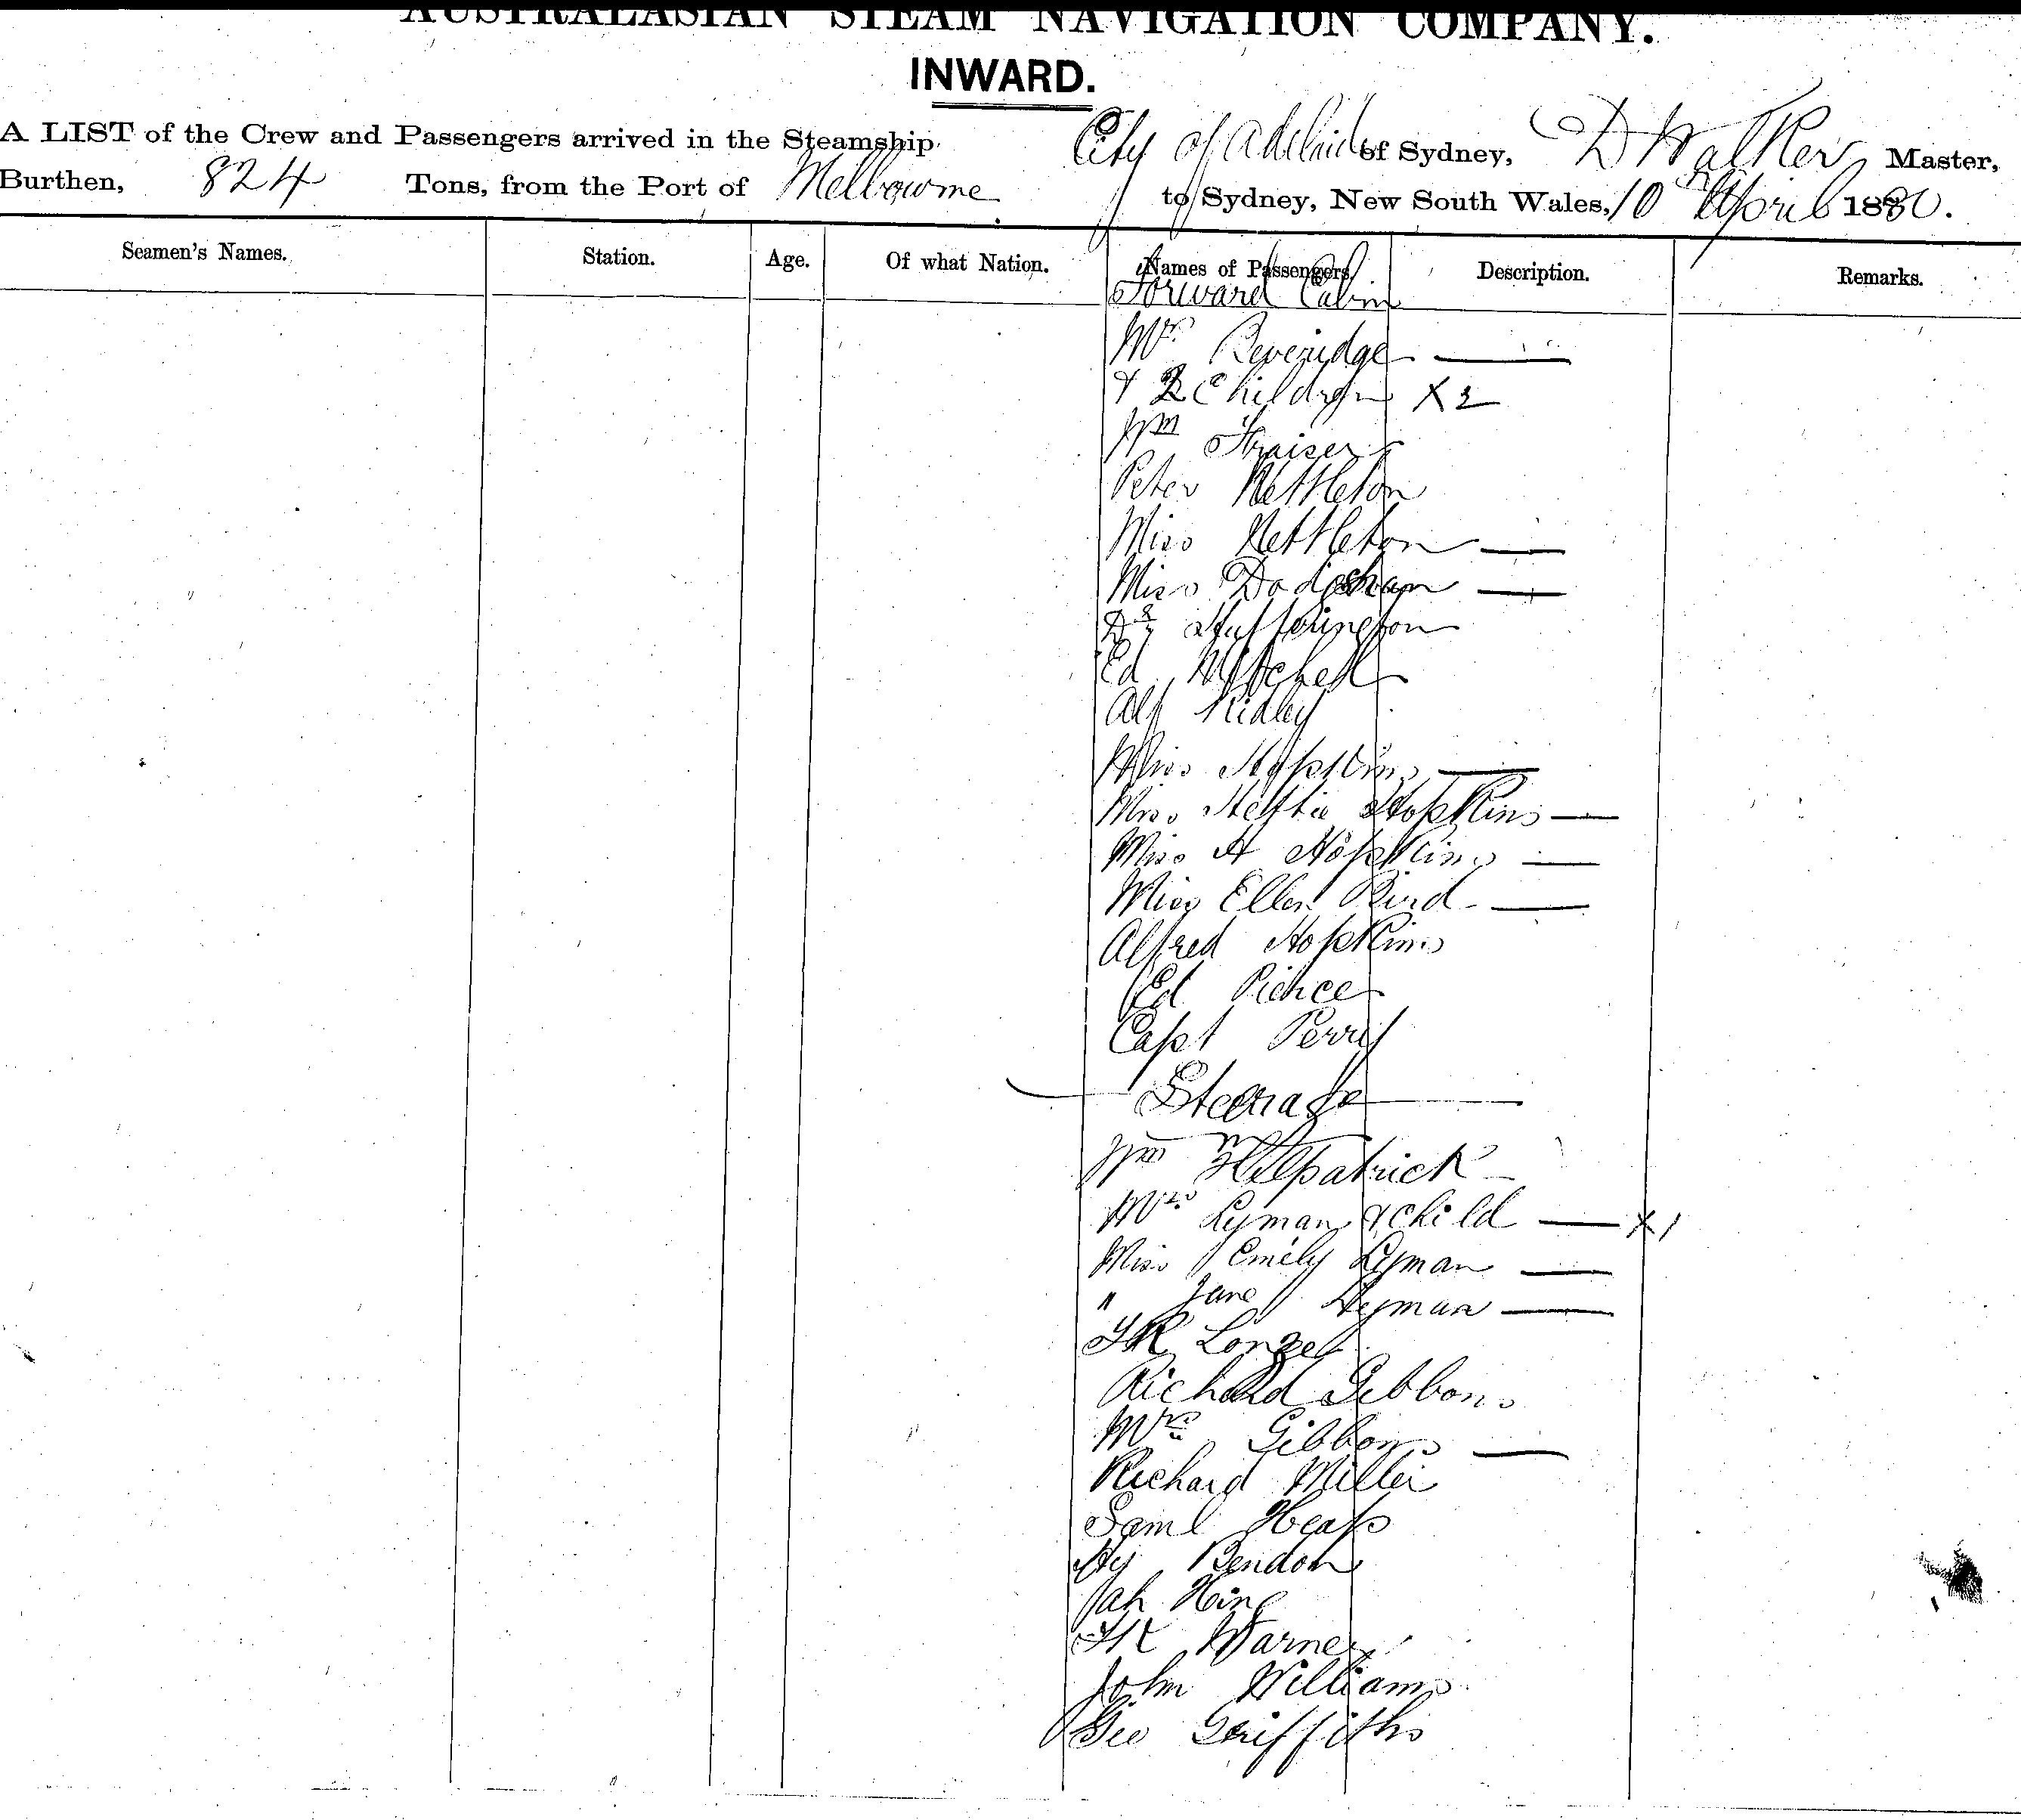 AUSTRALASIAN STEAM NAVIGATION COMPANY.
INWARD.
A LIST of the Crew and Passengers arrived in the Steamship City of Adelaide of Sydney, D Walker Master,
Burthen, 824 Tons, from the Port of Melbourne to Sydney, New South Wales, 10th April 1880.
Seamen's Names. Station. Age. Of what Nation. Names of Passengers Description. Remarks.
Forward Cabin
Mrs Beveridge
& 2 Children X 2
Wm Fraiser
Peter Nettleton
Miss Nettleton
Miss Dodgshun
Dr
Ed Mitchell
Alf Ridley
Miss Hopkins
Miss Hopkins
Miss A Hopkins
Miss Ellen Bird
Alfred Hopkins
Ed Pierce
Capt Perry
Steerage
Wm Kilpatrick
Mrs Lyman & Child X 1
Miss Emily Lyman
" Jane Lyman
Richard Gibbons
Mrs Gibbons
Richard Miller
Saml Heap
Hy Bendon
Jah Hing
Warner
John Williams
Geo Griffiths